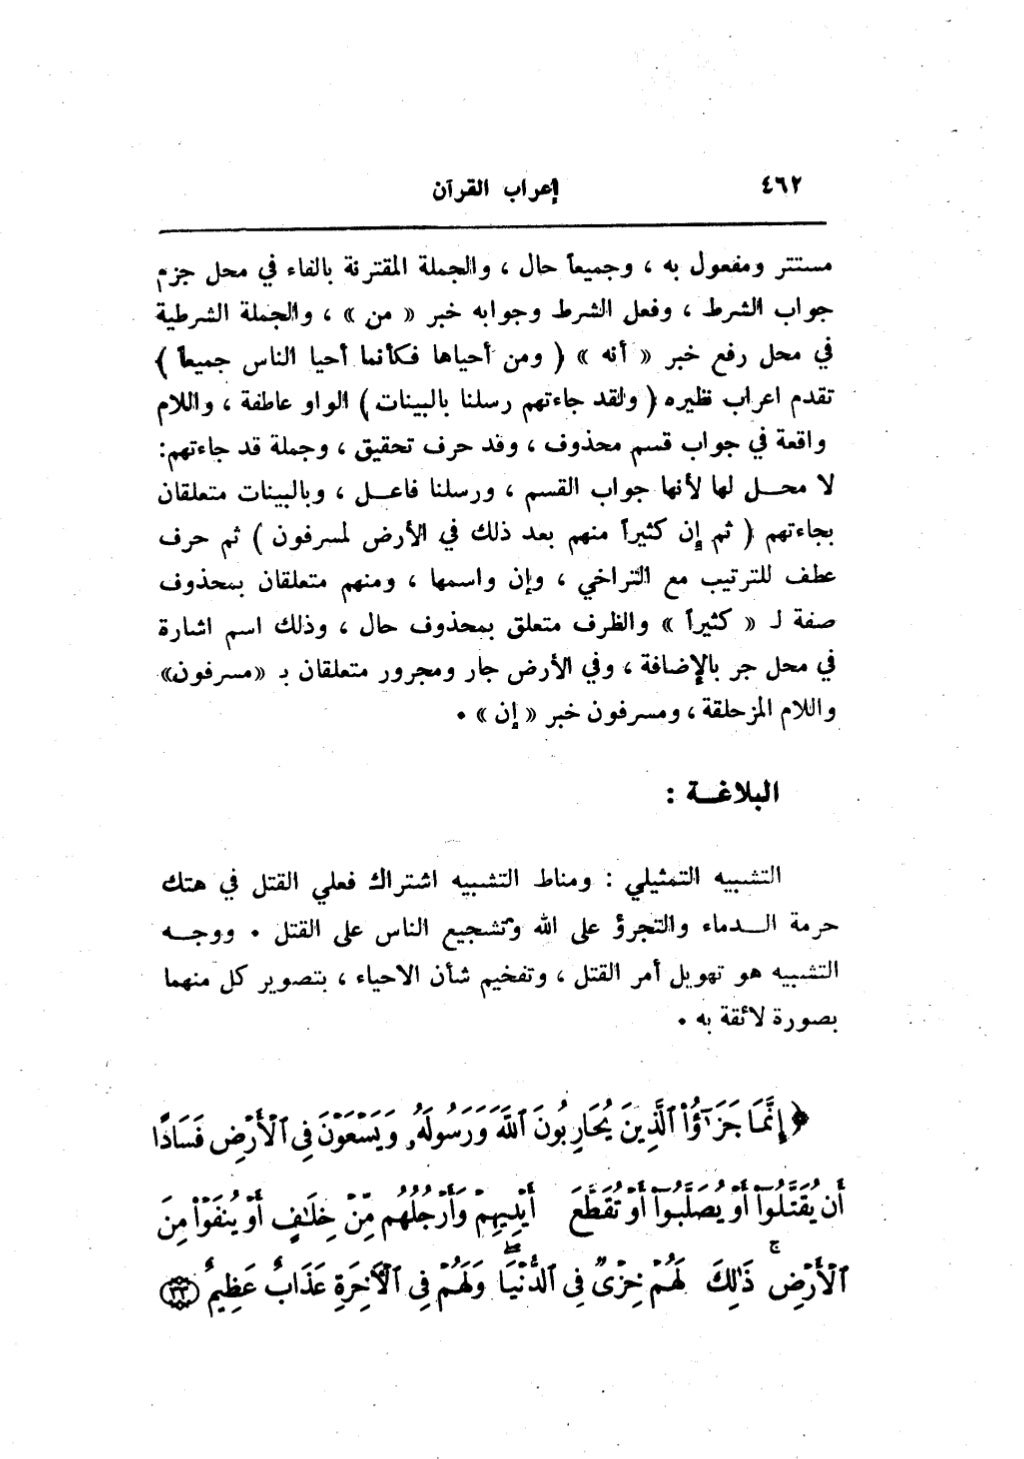 ٤٦٢ إعراب القرآن
مستتر ومفعول به ، وجميعاً حال ، والجملة المقترنة بالفاء في محل جزم
جواب الشرط ، وفعل الشرط وجوابه خبر « من » ، والجملة الشرطية
في محل رفع خبر « أنه » ( ومن أحياها فكأنما أحيا الناس جميعاً )
تقدم اعراب نظيره ( ولقد جاءتهم رسلنا بالبينات ) الواو عاطفة ، واللام
واقعة في جواب قسم محذوف ، وقد حرف تحقيق ، وجملة قد جاءتهم:
لا محــل لها لأنها جواب القسم ، ورسلنا فاعــل ، وبالبينات متعلقان
بجاءتهم ( ثم إن كثيراً منهم بعد ذلك في الأرض لمسرفون ) ثم حرف
عطف للترتيب مع التراخي ، وإن واسمها ، ومنهم متعلقان بمحذوف
صفة لـ « كثيراً » والظرف متعلق بمحذوف حال ، وذلك اسم اشارة
في محل جر بالإضافة ، وفي الأرض جار ومجرور متعلقان بـ «مسرفون»
واللام المزحلقة ، ومسرفون خبر « إن » ٠
البلاغــة :
التشبيه التمثيلي : ومناط التشبيه اشتراك فعلي القتل في هتك
حرمة الــدماء والتجرؤ على الله وتشجيع الناس على القتل ٠ ووجــه
التشبيه هو تهويل أمر القتل ، وتفخيم شأن الاحياء ، بتصوير كل منهما
بصورة لائقة به ٠
﴿ إِنَّمَا جَزَٰٓؤُاْ ٱلَّذِينَ يُحَارِبُونَ ٱللَّهَ وَرَسُولَهُۥ وَيَسْعَوْنَ فِي ٱلْأَرْضِ فَسَادًا
أَن يُقَتَّلُوٓاْ أَوْ يُصَلَّبُوٓاْ أَوْ تُقَطَّعَ أَيْدِيهِمْ وَأَرْجُلُهُم مِّنْ خِلَٰفٍ أَوْ يُنفَوْاْ مِنَ
ٱلْأَرْضِ ۚ ذَٰلِكَ لَهُمْ خِزْىٌ فِي ٱلدُّنْيَا ۖ وَلَهُمْ فِي ٱلْآخِرَةِ عَذَابٌ عَظِيمٌ ٣٣